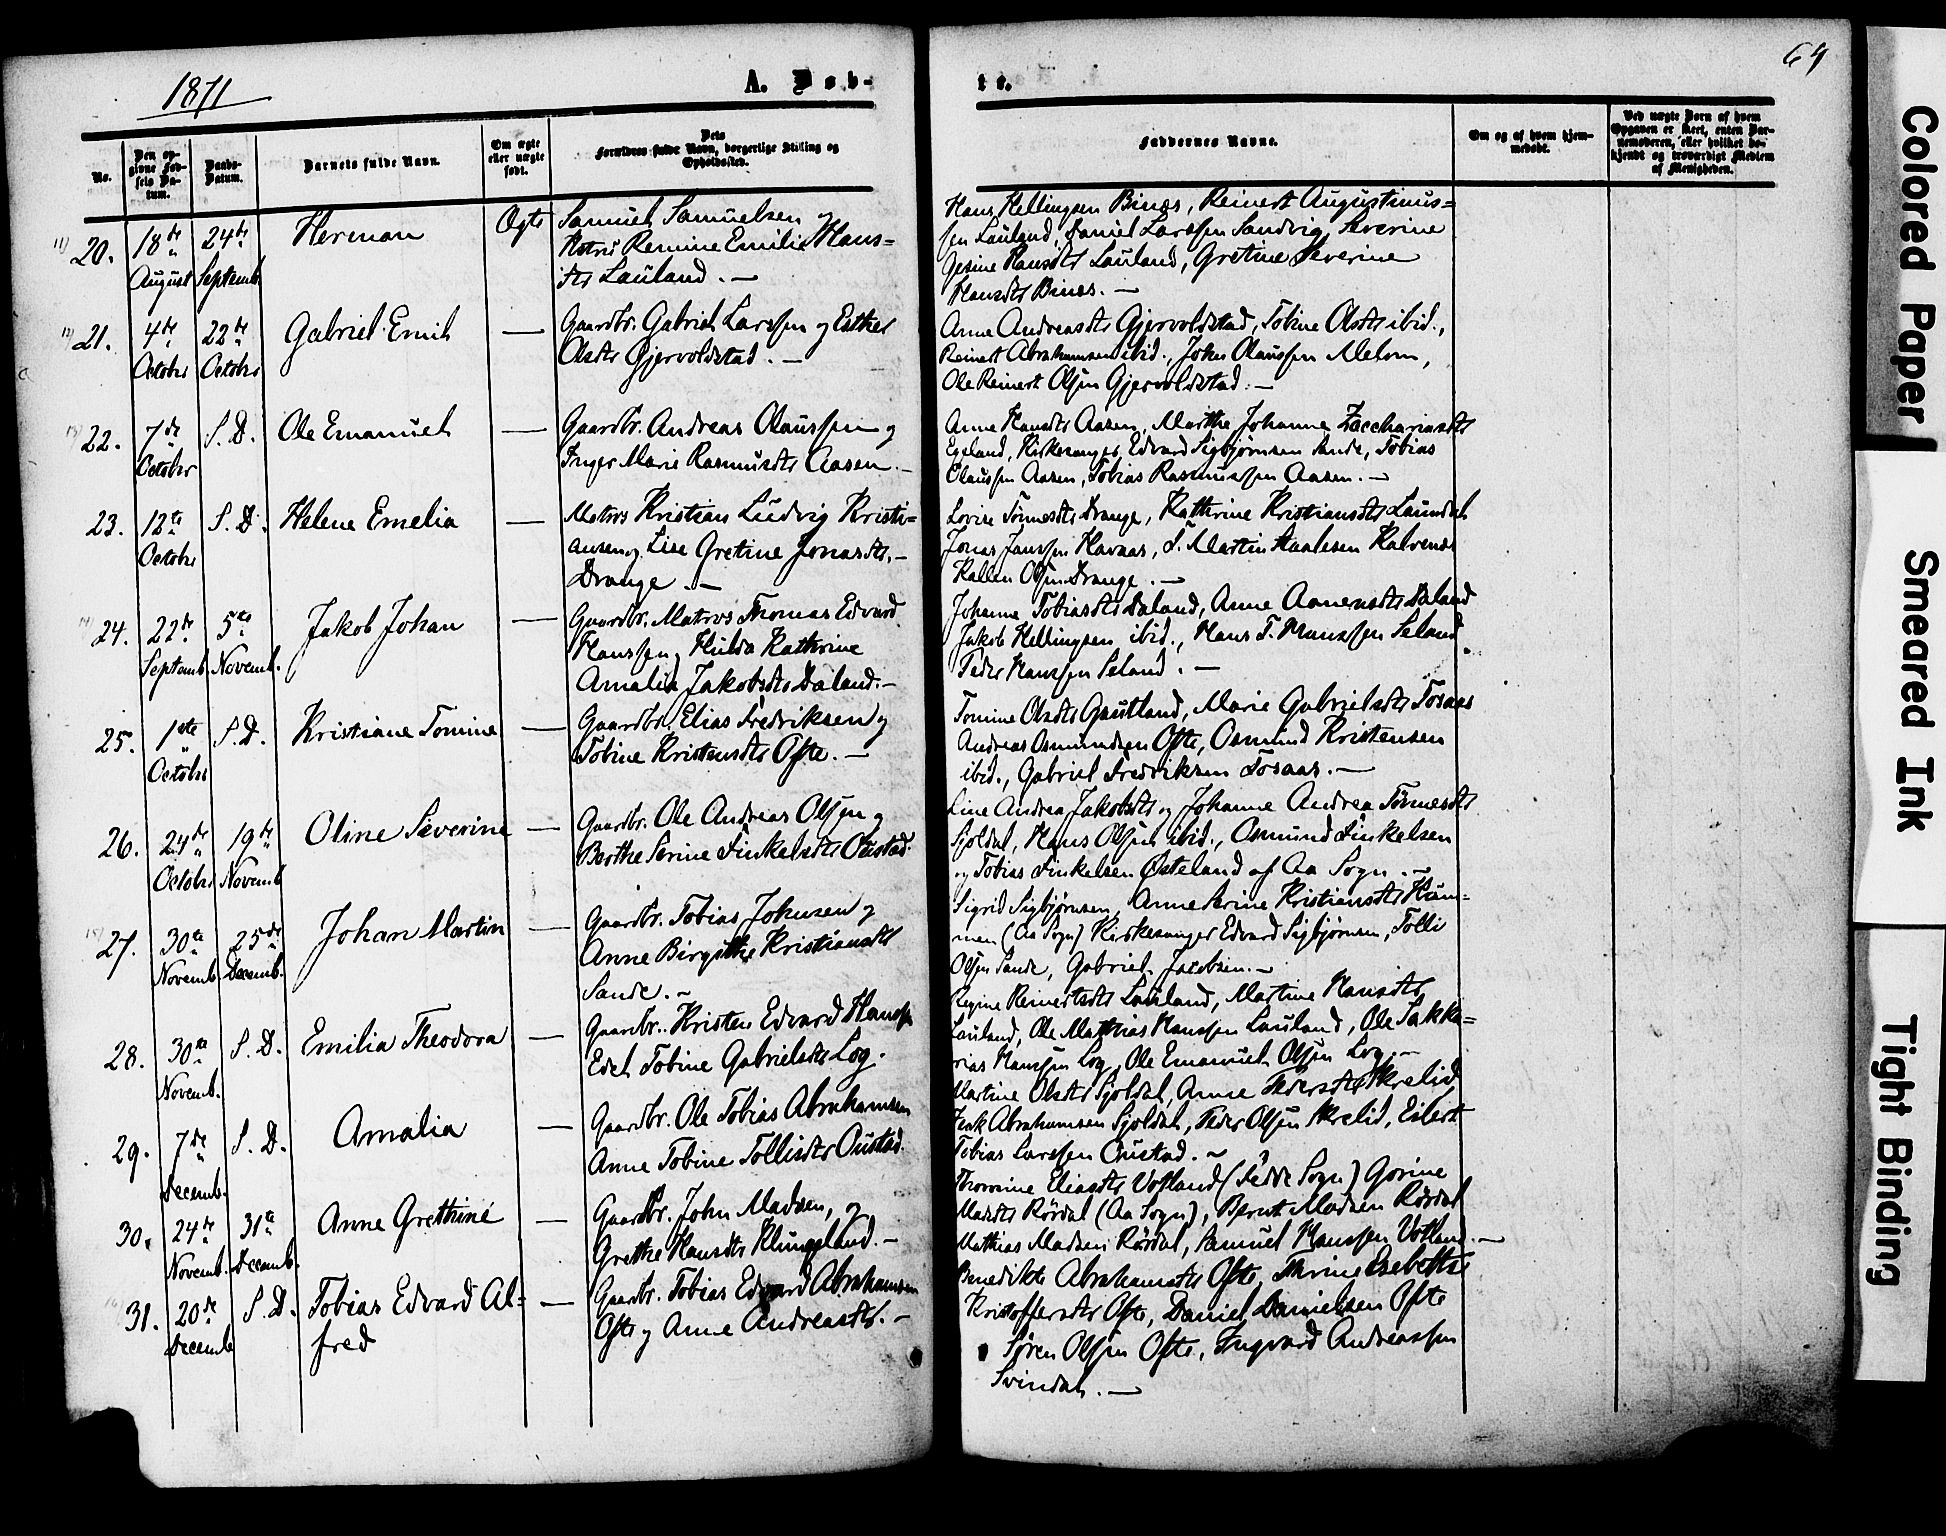 1871
A. Døb-
te.
64
No.
Den op-
givne Fød-
sels Da-
tum.
Daabs-
Datum.
Barnets fulde Navn.
Om ægte
eller uægte
født.
Dets
Forældres fulde Navn, borgerlige Stilling og
Opholdssted.
Faddernes Navne.
Om og af hvem hjem-
medøbt.
Ved uægte Børn af hvem
Opgaven er skeet, enten Bar-
nemoderen, eller hvilket be-
kjendt og troværdigt Medlem
af Menigheden.
11) 20. 18de August 24de Septemb. Herman Ægte
Samuel Samuelsen og
Remine Emilie Hans-
dtr Lauland. —
Hans Hellingsen Binæs, Reinert Augustinus-
sen Lauland, Daniel Larssen Sandvig, Severine
Gesine Hansdtr Lauland, Gretine Severine
Hansdtr Binæs. —
12) 21. 4de Octobr 22de Octobr Gabriel Emil —
Gaardbr. Gabriel Larssen og Esther
Olsdtr Gjervoldstad. —
Anne Andreasdtr Gjervoldstad, Tobine Olsdtr ibid.,
Reinert Abrahamsen ibid., John Olaussen Melom,
Ole Reinert Olsen Gjervoldstad. —
13) 22. 7de Octobr S. D. Ole Emanuel —
Gaardbr. Andreas Olaussen og
Inger Marie Rasmusdtr Aasen. —
Anne Hansdtr Aasen, Marthe Johanne Zacchariasdtr
Egeland, Kirkesanger Edvard Sigbjørnsen Sande, Tobias
Olaussen Aasen, Tobias Rasmussen Aasen. —
23. 12te Octobr S. D. Helene Emelia —
Matros Kristian Ludvig Kristi-
ansen og Lise Gretine Jonasdtr. —
Drange —
Lovise Tønnesdtr Drange, Kathrine Kristiansdtr Laundal
Jonas Janssen Havaas, T. Martin Aanlesen Kalvenæs
Kallen Olsen Drange. —
14) 24. 22de Septemb. 5te Novemb. Jakob Johan —
Gaardbr. Matros Thomas Edvard
Hanssen og Hilda Kathrine
Amalia Jakobsdtr Daland. —
Johanne Tobiasdtr Daland, Anne Aanensdtr Daland
Jakob Hellingsen ibid., Hans T. Hanssen Seland
Peder Hanssen Seland. —
25. 1ste Octobr S. D. Kristiane Tomine —
Gaardbr. Elias Fredriksen og
Tobine Kristensdtr Ofte. —
Tomine Olsdtr Gautland, Marie Gabrielsdtr Fosaas
Andreas Osmundsen Ofte, Osmund Kristensen
ibid., Gabriel Fredriksen Fosaas. —
26. 24de Octobr 19de Novemb. Oline Severine —
Gaardbr. Ole Andreas Olsen og
Berthe Serine Finkelsdtr Oustad.
Line Andrea Jakobsdtr og Johanne Andrea Tønnesdtr
Sjøldal, Hans Olsen ibid., Osmund Finkelsen
og Tobias Finkelsen Østeland af Aa Sogn. —
15) 27. 30te Novemb. 25de Decemb. Johan Martin —
Gaardbr. Tobias Johnsen og
Anne Birgithe Kristiansdtr
Sande. —
Sigrid Sigbjørnsen, Anne Serine Kristiansdtr Hum-
men (Aa Sogn) Kirkesanger Edvard Sigbjørnsen, Tolli
Olsen Sande, Gabriel Jacobsen. —
28. 30te Novemb. S. D. Emilia Theodora —
Gaardbr. Kristen Edvard Hanssen
Edel Tobine Gabrielsdtr Log.
Regine Reinertsdtr Lauland, Martine Hansdtr
Lauland, Ole Mathias Hanssen Lauland, Ole Sakka-
rias Hanssen Log, Ole Emanuel Olsen Log. —
29. 7de Decemb. S. D. Amalia —
Gaardbr. Ole Tobias Abrahamsen
Anne Tobine Tollisdtr Oustad.
Martine Olsdtr Sjøldal, Anne Pedersdtr Skrelid
Abrahamsen Sjøldal, Peder Olsen Skrelid, Eilert
Tobias Larssen Oustad. —
30. 24de Novemb. 31te Decemb. Anne Grethine —
Gaardbr. John Madsen, og
Grethe Hansdtr Klungeland. —
Thorine Eliasdtr Votland (Fedde Sogn) Gorine
Madsdtr Rørdal (Aa Sogn), Berent Madsen Rørdal
Mathias Madsen Rørdal, Samuel Hanssen Votland. —
16) 31. 20de Decemb S. D. Tobias Edvard Al-
fred —
Gaardbr. Tobias Edvard Abrahamsen
Ofte og Anne Andreasdtr. —
Benedikte Abrahamsdtr Ofte, Thrine Elsebethe
Kristoffersdtr Ofte, Daniel Danielsen Ofte
Søren Olsen Ofte, Ingvard Andreassen
Svindal. —
Colored Paper
Smeared Ink
Tight Binding